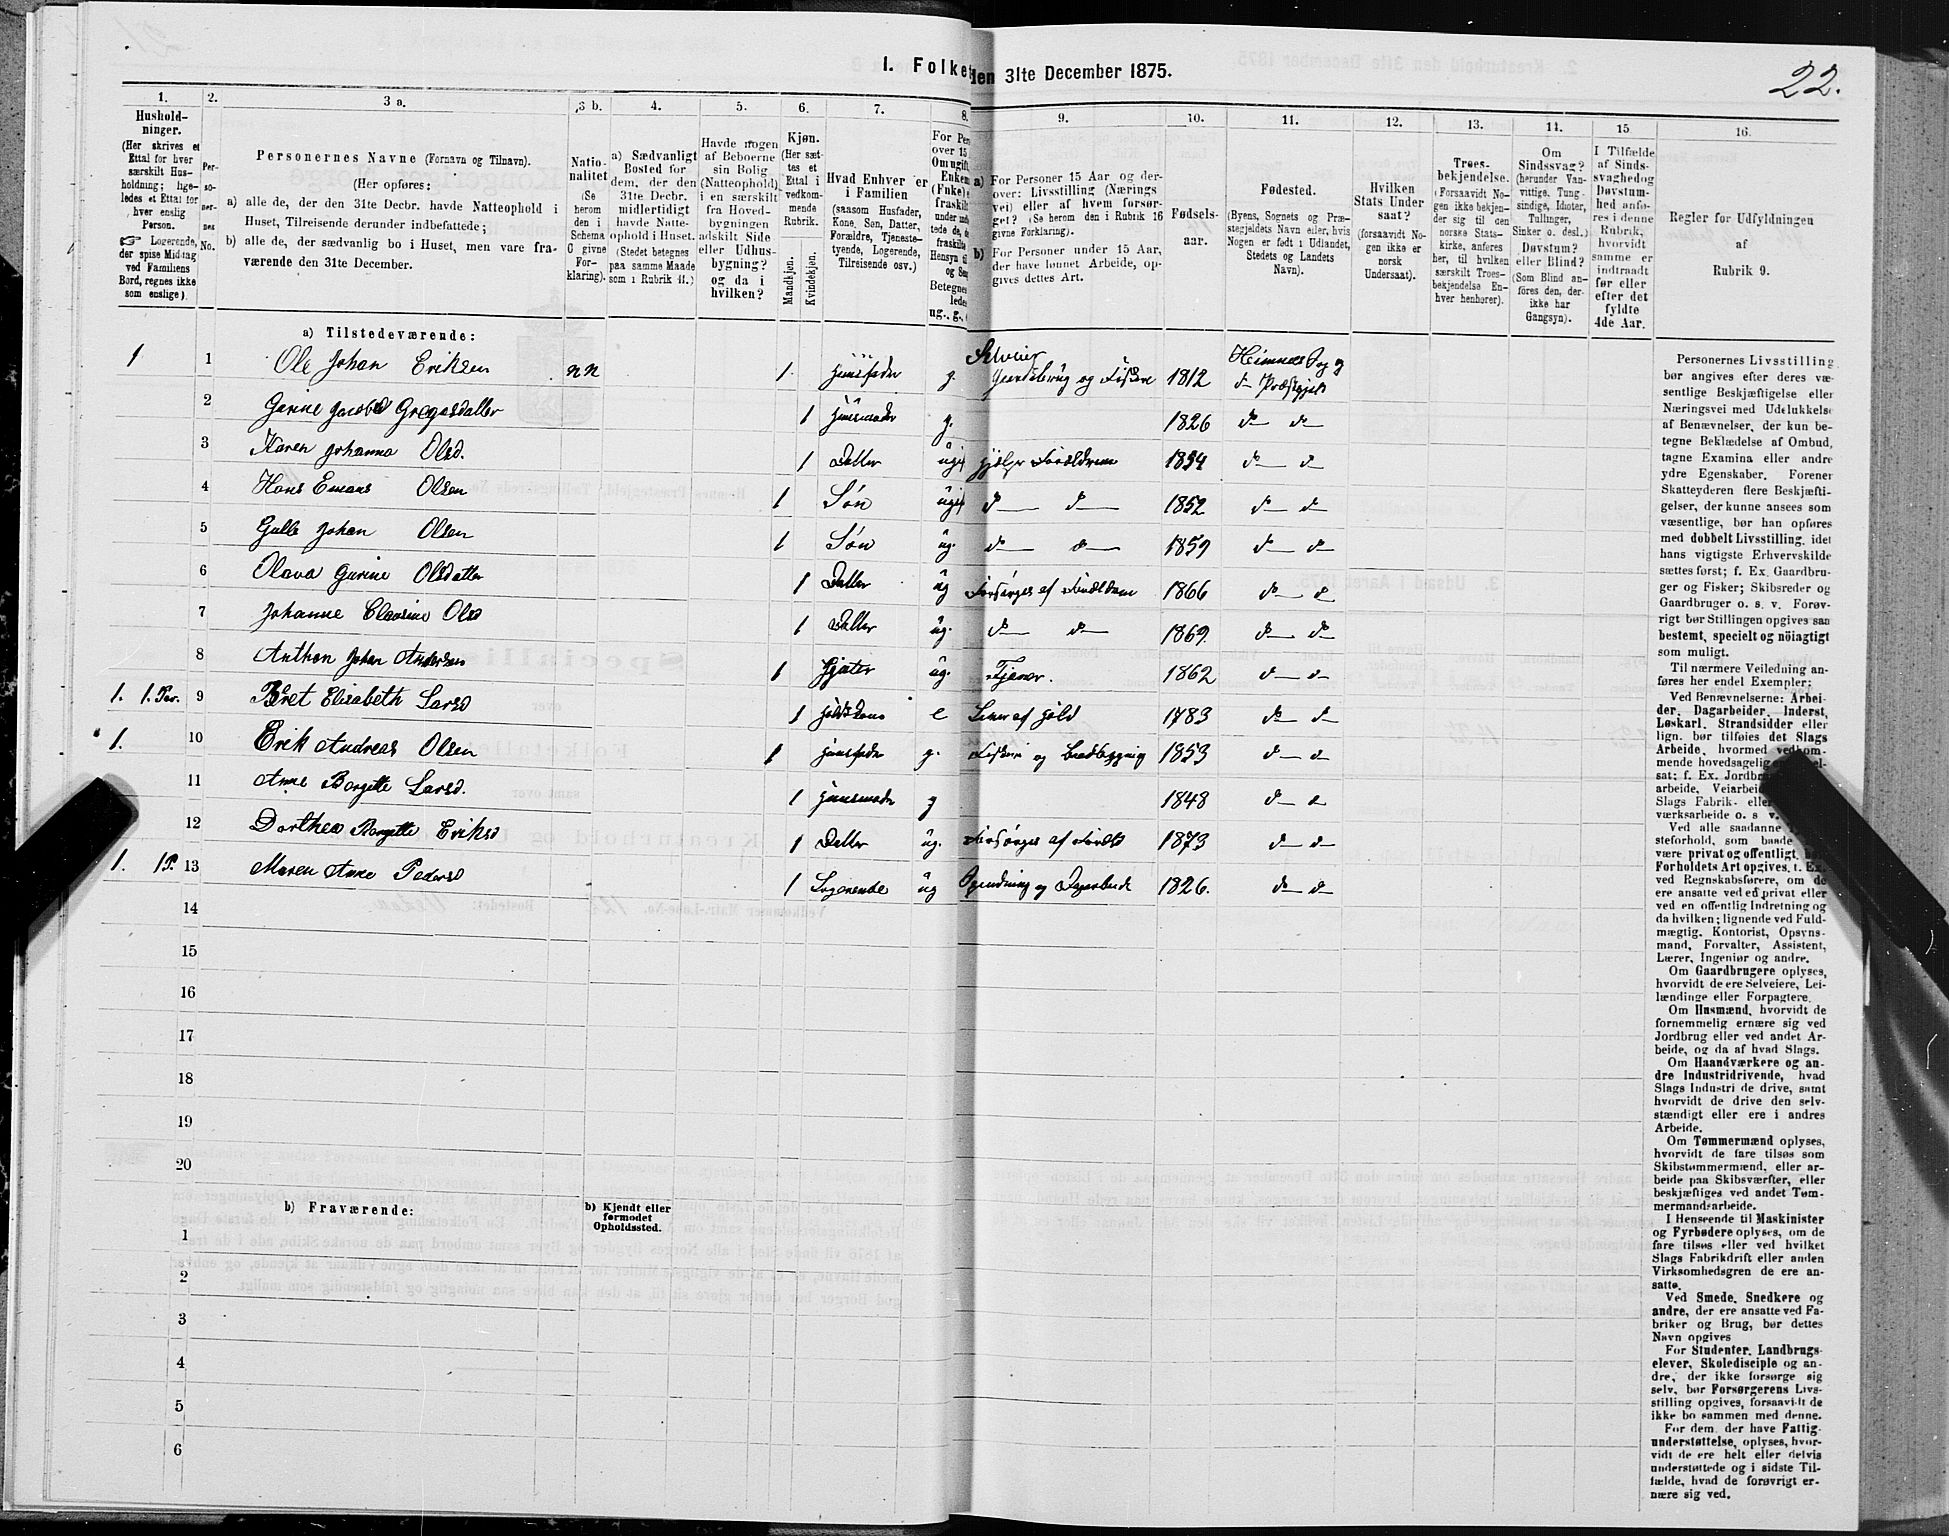 1. Folke
den 31te December 1875.
22.
1. 2. 3 a. 3 b. 4. 5. 6. 7. 8. 9. 10. 11. 12. 13. 14. 15 16.
Hushold-
ninger.
(Her skrives et
Ettal for hver
særskilt Hus-
holdning; lige-
ledes et Ettal for
hver enslig
Person.
☞ Logerende,
der spise Middag
ved Familiens
Bord, regnes ikke
som enslige).
Per-
so-
ner-
nes
No.
Personernes Navne (Fornavn og Tilnavn).
(Her opføres:
a) alle de, der den 31te Decbr. havde Natteophold i
Huset, Tilreisende derunder indbefattede;
b) alle de, der sædvanlig bo i Huset, men vare fra-
værende den 31te December.
Natio-
nalitet
(Se
herom
den i
Schema
C givne
For-
klaring).
a) Sædvanligt
Bosted for
dem, der den
31te Decbr.
midlertidigt
havde Natte-
ophold i Huset.
(Stedet betegnes
paa samme Maade
som i Rubrik 11.)
Havde nogen
af Beboerne
sin Bolig
(Natteophold)
i en særskilt
fra Hoved-
bygningen
adskilt Side
eller Udhus-
bygning?
og da i
hvilken?
Kjøn.
(Her sæt-
tes et
Ettal i
vedkom-
mende
Rubrik.
Mandkjøn.
Kvindekjøn.
Hvad Enhver er
i Familien
(saasom Husfader,
Kone, Søn, Datter,
Forældre, Tjeneste-
tyende, Logerende,
Tilreisende osv.)
For Per
over 15
Om ugift
Enkem
(Fnke)
fraskilt
Betegnes
ledes
ug., g.,
a) For Personer 15 Aar og der-
over: Livsstilling (Nærings
vei) eller af hvem forsør-
get? (Se herom den i Rubrik 16
givne Forklaring).
b) For Personer under 15 Aar,
der have lønnet Arbeide, op-
gives dettes Art.
Fødsels-
aar.
Fødested.
(Byens, Sognets og Præ-
stegjeldets Navn eller, hvis
Nogen er født i Udlandet,
Stedets og Landets
Navn).
Hvilken
Stats Under
saat?
(forsaavidt No-
gen ikke er
norsk
Undersaat).
Troes-
bekjendelse.
(Forsaavidt No-
gen ikke bekjen-
der sig til den
norske Stats-
kirke, anføres
her, til hvilken
særskilt Troes-
bekjendelse En-
hver henhører).
Om
Sindssvag?
(herunder Van-
vittige, Tung-
sindige, Idioter,
Tullinger,
Sinker o. desl.)
Døvstum?
eller Blind?
(Som Blind an-
føres den, der-
ikke har
Gangsyn).
I Tilfælde
af Sinds-
svaghed og
Døvstum-
hed anfø-
res i denne
Rubrik,
hvorvidt
samme er
indtraadt
før eller
efter det
fyldte
4de Aar.
Regler for Udfyldningen
af
Rubrik 9.
a) Tilstedeværende:
1 1 Ole Johan Eriksen nn 1 Huusfader g. Selveier Gaardsbrug og Fiskere 1812 Hemnes Sogn d— Præstegjeld
2 Gurine Jacobd Gregusdatter 1 Huusmoder g. 1826 d— d—
3 Karen Johanna Olsd. 1 Datter ugi Hjelper Forældrene 1854 d— d—
4 Hans Emans Olsen 1 Søn ugi d— d— 1852 d— d—
5 Johan Olsen 1 Søn ug. d— d— 1859 d— d—
6 Olava Gurine Olsdatter 1 Datter ug Forsørges af Forældrene 1866 d— d
7 Johanne Olsd 1 Datter ug. d— d— 1869. d— d—
8 Anthon Johan Andersen 1 Gjæter ug. Tjener. 1862 d— d—
1. 1. Par. 9 Beret Elisabeth Larsd 1 e Lever af 1783 d— d—
1. 10 Erik Andreas Olsen 1 Huusfader g. Fisker og Baadbygning 1853 d— d—
11 Anne Bergette Larsd. 1 Huusmoder g 1848 d— d
12 Dorthea Bergette Eriksd 1 Datter ug. Forsørges af Foreld 1873 d— d—
1. 1P. 13 Maren Anne Pedersd 1 Logerende ug Spinding og Dagarbeide 1826. d— d—
14
15
16
17
18
19
20
b) Fraværende:
b) Kjendt eller
formodet
Opholdssted.
1
2
3
4
5
6
Personernes Livsstilling
bør angives efter deres væ-
sentlige Beskjæftigelse eller
Næringsvei med Udelukkelse
af Benævnelser, der kun be-
tegne Beklædelse af Ombud,
tagne Examina eller andre
ydre Egenskaber. Forener
Skatteyderen flere Beskjæfti-
gelser, der kunne ansees som
væsentlige, bør han opføres
med dobbelt Livsstilling, idet
hans vigtigste Erhvervskilde
sættes først; f. Ex. Gaardbru-
ger og Fisker; Skibsreder og
Gaardbruger o. s. v. Forøv-
rigt bør Stillingen opgives saa
bestemt, specielt og nöiagtigt
som muligt.
Til nærmere Veiledning an-
føres her endel Exempler;
Ved Benævnelserne: Arbei-
der, Dagarbeider, Inderst,
Løskarl, Strandsidder eller
lign. bør tilføies det Slags
Arbeide, hvormed vedkom-
mende hovedsagelig
sat; f. Ex. Jordbr
arbeide, Veiarbei
Slags Fabrik- elle
værksarbeide o. s v.
Ved alle saadanne
steforhold, som baade
være privat og offentligt,
Forholdets Art opgives, t. Ex.
ved Regnskabsførere, om de
ere ansatte ved et privat eller
ved en offentlig Indretning og
da hvilken; lignende ved Fuld-
mægtig, Kontorist, Opsyns-
mand, Forvalter, Assistent,
Lærer, Ingeniør og andre.
Om Gaardbrugere oplyses,
hvorvidt de ere Selveiere, Lei-
lændinge eller Forpagtere.
Om Husmænd, hvorvidt de
fornemmelig ernære sig ved
Jordbrug eller ved andet Ar-
beide, og da af hvad Slags.
Om Haandværkere og an-
dre Industridrivende, hvad
Slags Industri de drive, samt
hvorvidt de drive den selv-
stændigt eller ere i andres
Arbeide.
Om Tømmermænd oplyses,
hvorvidt de fare tilsøs som
Skibstømmermænd, eller ar-
beide paa Skibsværfter, eller
beskjæftiges ved andet Tøm-
mermandsarbeide.
I Henseende til Maskinister
og Fyrbødere oplyses, om de
fare tilsøs eller ved hvilket
Slags Fabrikdrift eller anden
Virksomhedsgren de ere an-
satte.
Ved Smede, Snedkere og
andre, der ere ansatte ved Fa-
briker og Brug, bør dettes
Navn opgives
For Studenter, Landbrugs-
elever, Skoledisciple og an-
dre, der ikke forsørge sig
selv, bør Forsørgerens Livs-
stilling opgives, forsaavidt de
ikke bo sammen med denne.
For dem, der have Fattig-
understøttelse, oplyses, hvor-
vidt de ere helt eller delvis
understøttede og i sidste Til-
fælde, hvad de forøvrigt er-
nære sig ved.